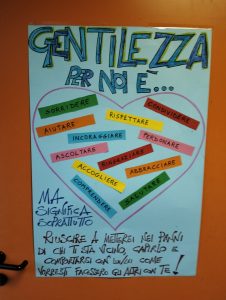 GENTILEZZA
PER NOI È...
SORRIDERE
CONDIVIDERE
AIUTARE
RISPETTARE
INCORAGGIARE
PERDONARE
ASCOLTARE
RINGRAZIARE
ACCOGLIERE
ABBRACCIARE
COMPRENDERE
SALUTARE
MA
SIGNIFICA
SOPRATTUTTO
RIUSCIRE A METTERSI NEI PANNI
DI CHI TI STA VICINO, CAPIRLO E
COMPORTARSI CON LUI/LEI COME
VORRESTI FACESSERO GLI ALTRI CON TE!